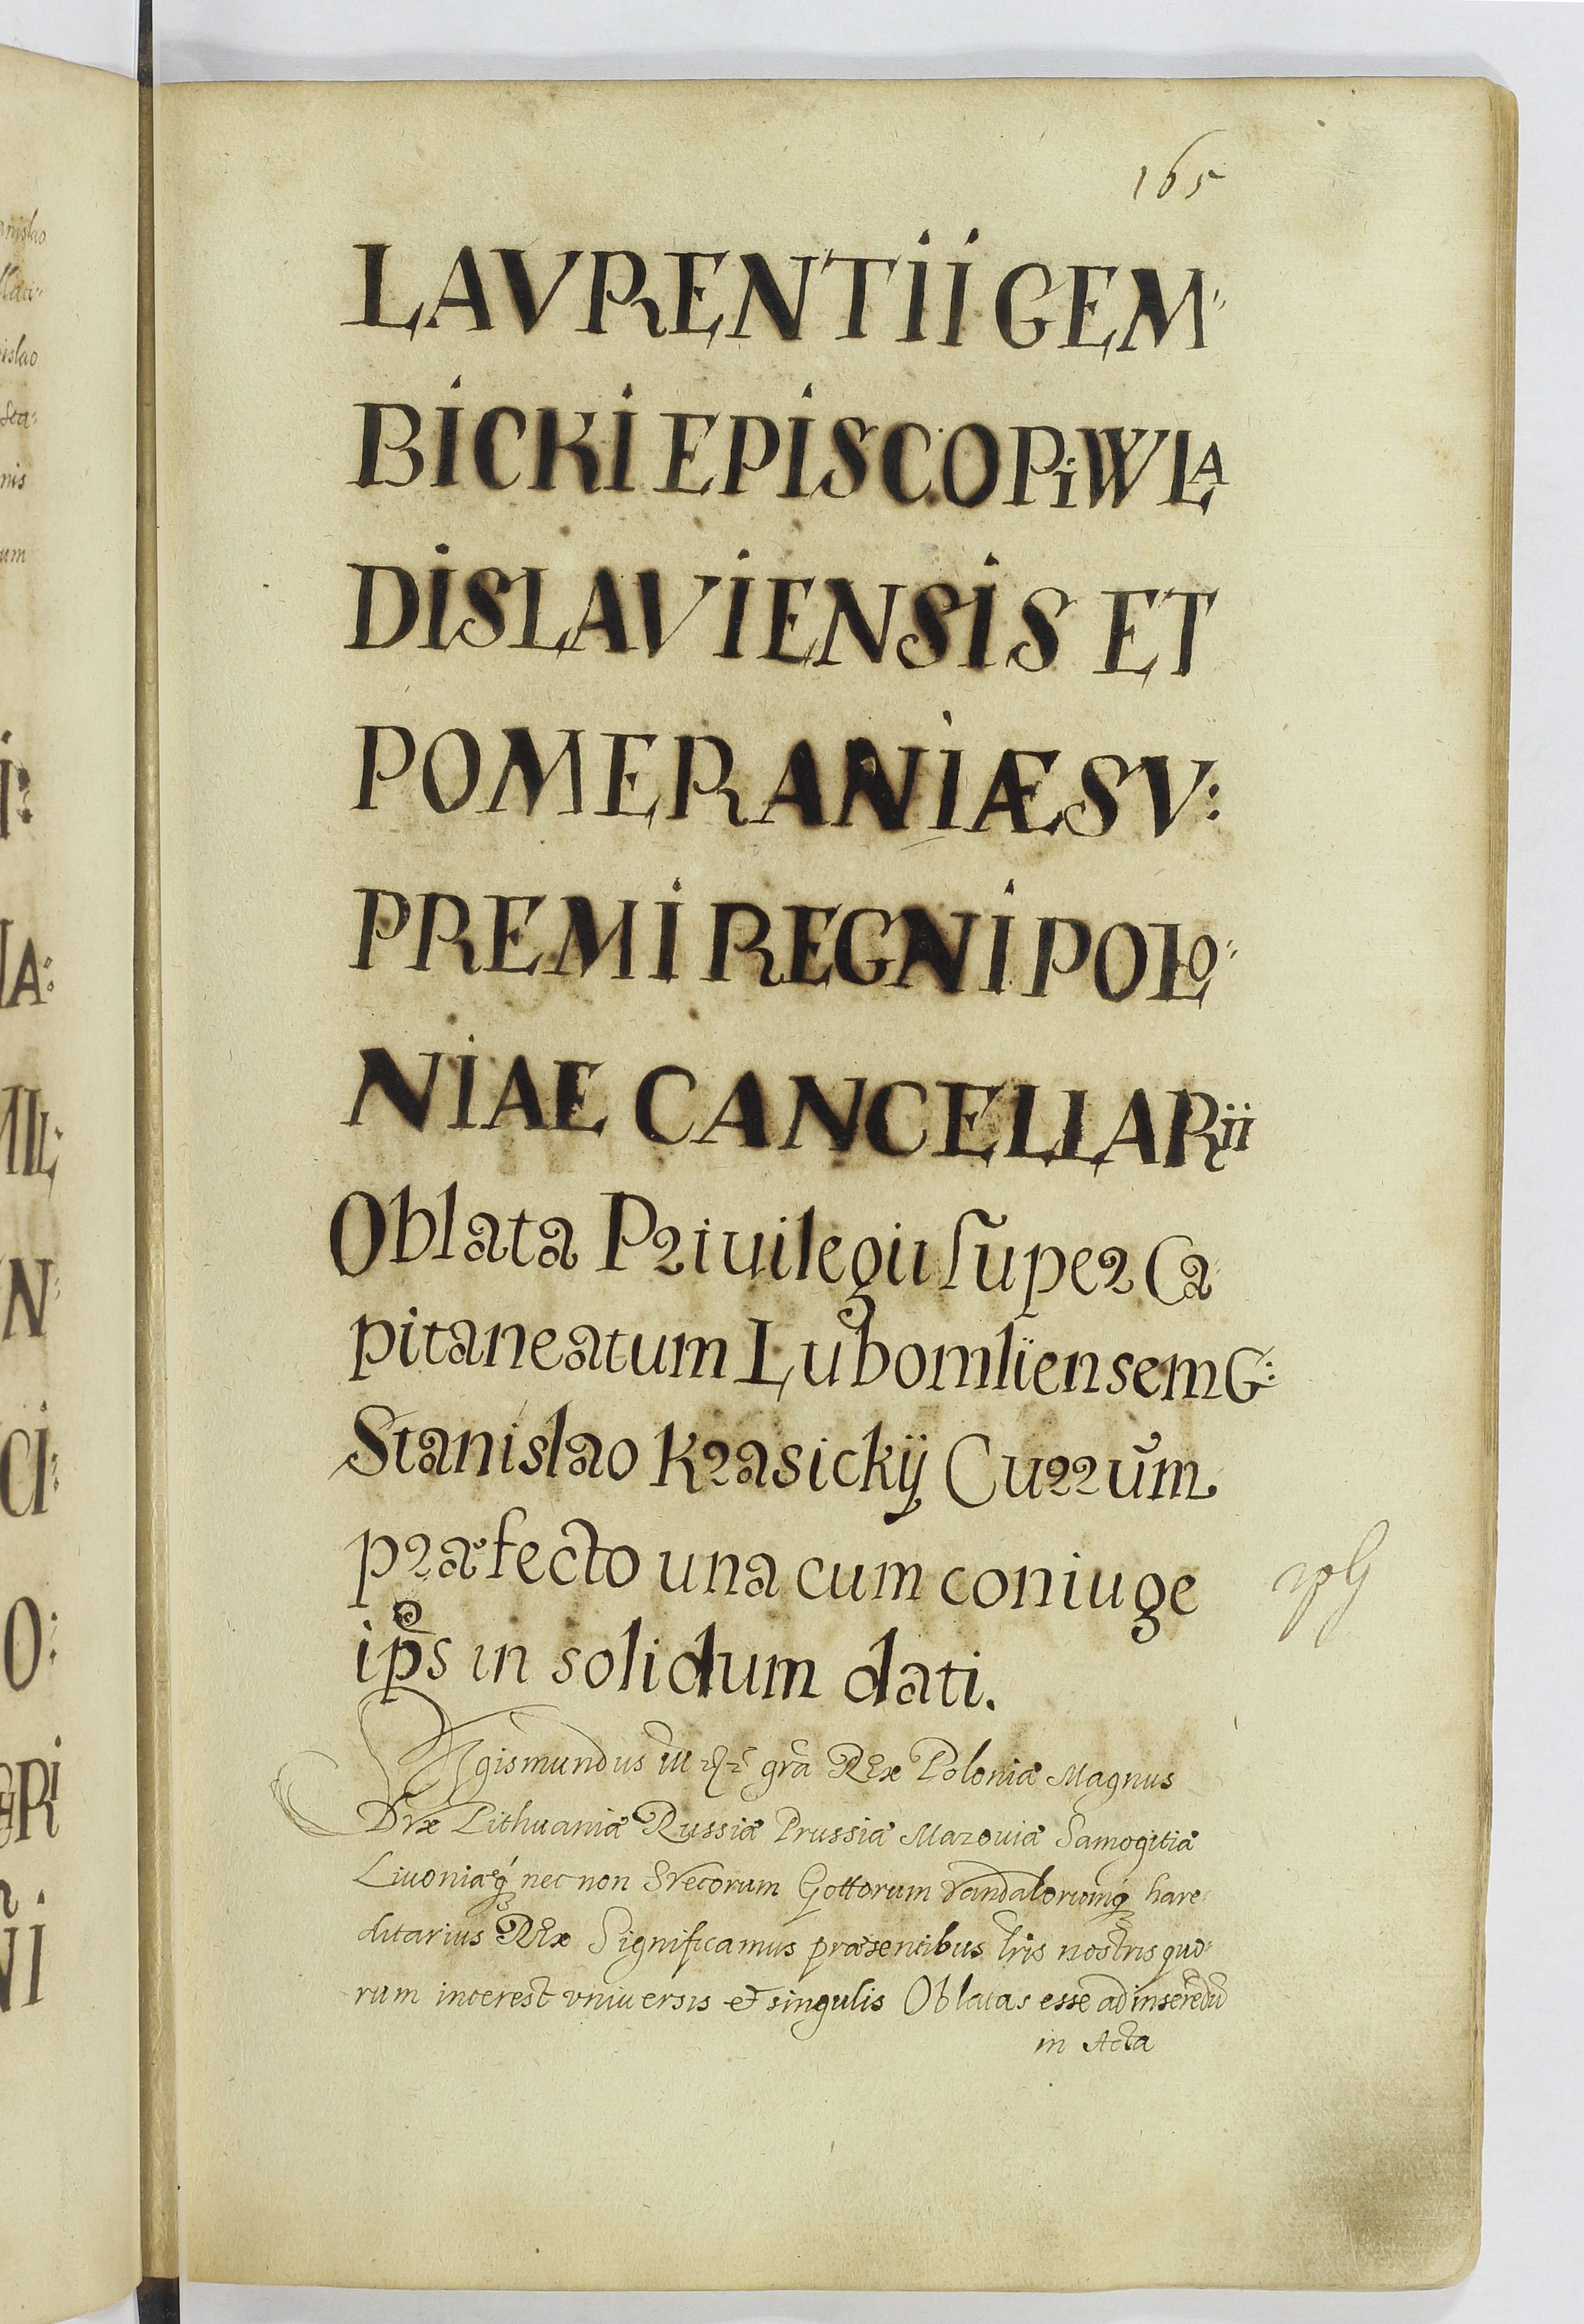 165
LAVRENTII GEM"
BICKI EPISCOPI WLA
DISLAVIENSIS ET
POMERANIÆ SV:
PREMI REGNI POLO"
NIAE CANCELLARII
Oblata Priuilegii super Ca
pitaneatum Lubomliensem G:
Stanislao Krasickÿ Currum
præfecto una cum coniuge
ips in solidum dati.
Sigismundus III grã Rex Poloniæ Magnus
Dvx Lithuaniæ Russiæ Prussiæ Mazouiæ Samogitiæ
Liuoniæq́ nec non Svecorum Gottorum Vandalorumq́ hære:
ditarius Rex Significamus præsentibus lris nostris quo"
rum interest vniuersis et singulis Oblatas esse ad inserẽdũ
in Acta
anislao
islao
nis
um
I:
NA:
MIL:
N:
CI:
O:
RI
NI